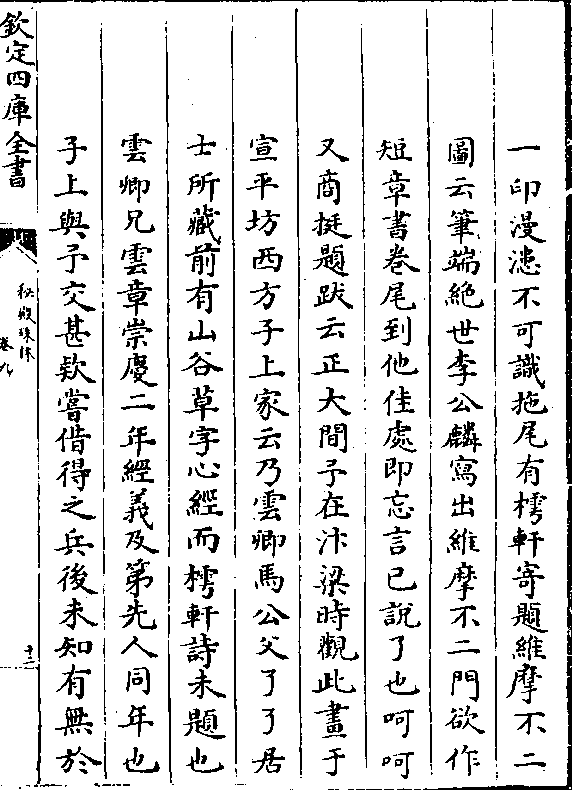 一印漫漶不可識拖尾有樗軒寄題維摩不二
圖云筆端絶世李公麟寫出維摩不二門欲作
短章書卷尾到他佳處即忘言已說了也呵呵
又商挺題跋云正大間予在汴梁時觀此畫于
宣平坊西方子上家云乃雲卿馬公父了了居
士所藏前有山谷草字心經而樗軒詩未題也
雲卿兄雲章崇慶二年經義及第先人同年也
子上與予交甚欵嘗借得之兵後未知有無於
欽定四庫全書
秘殿珠林
卷九
十二